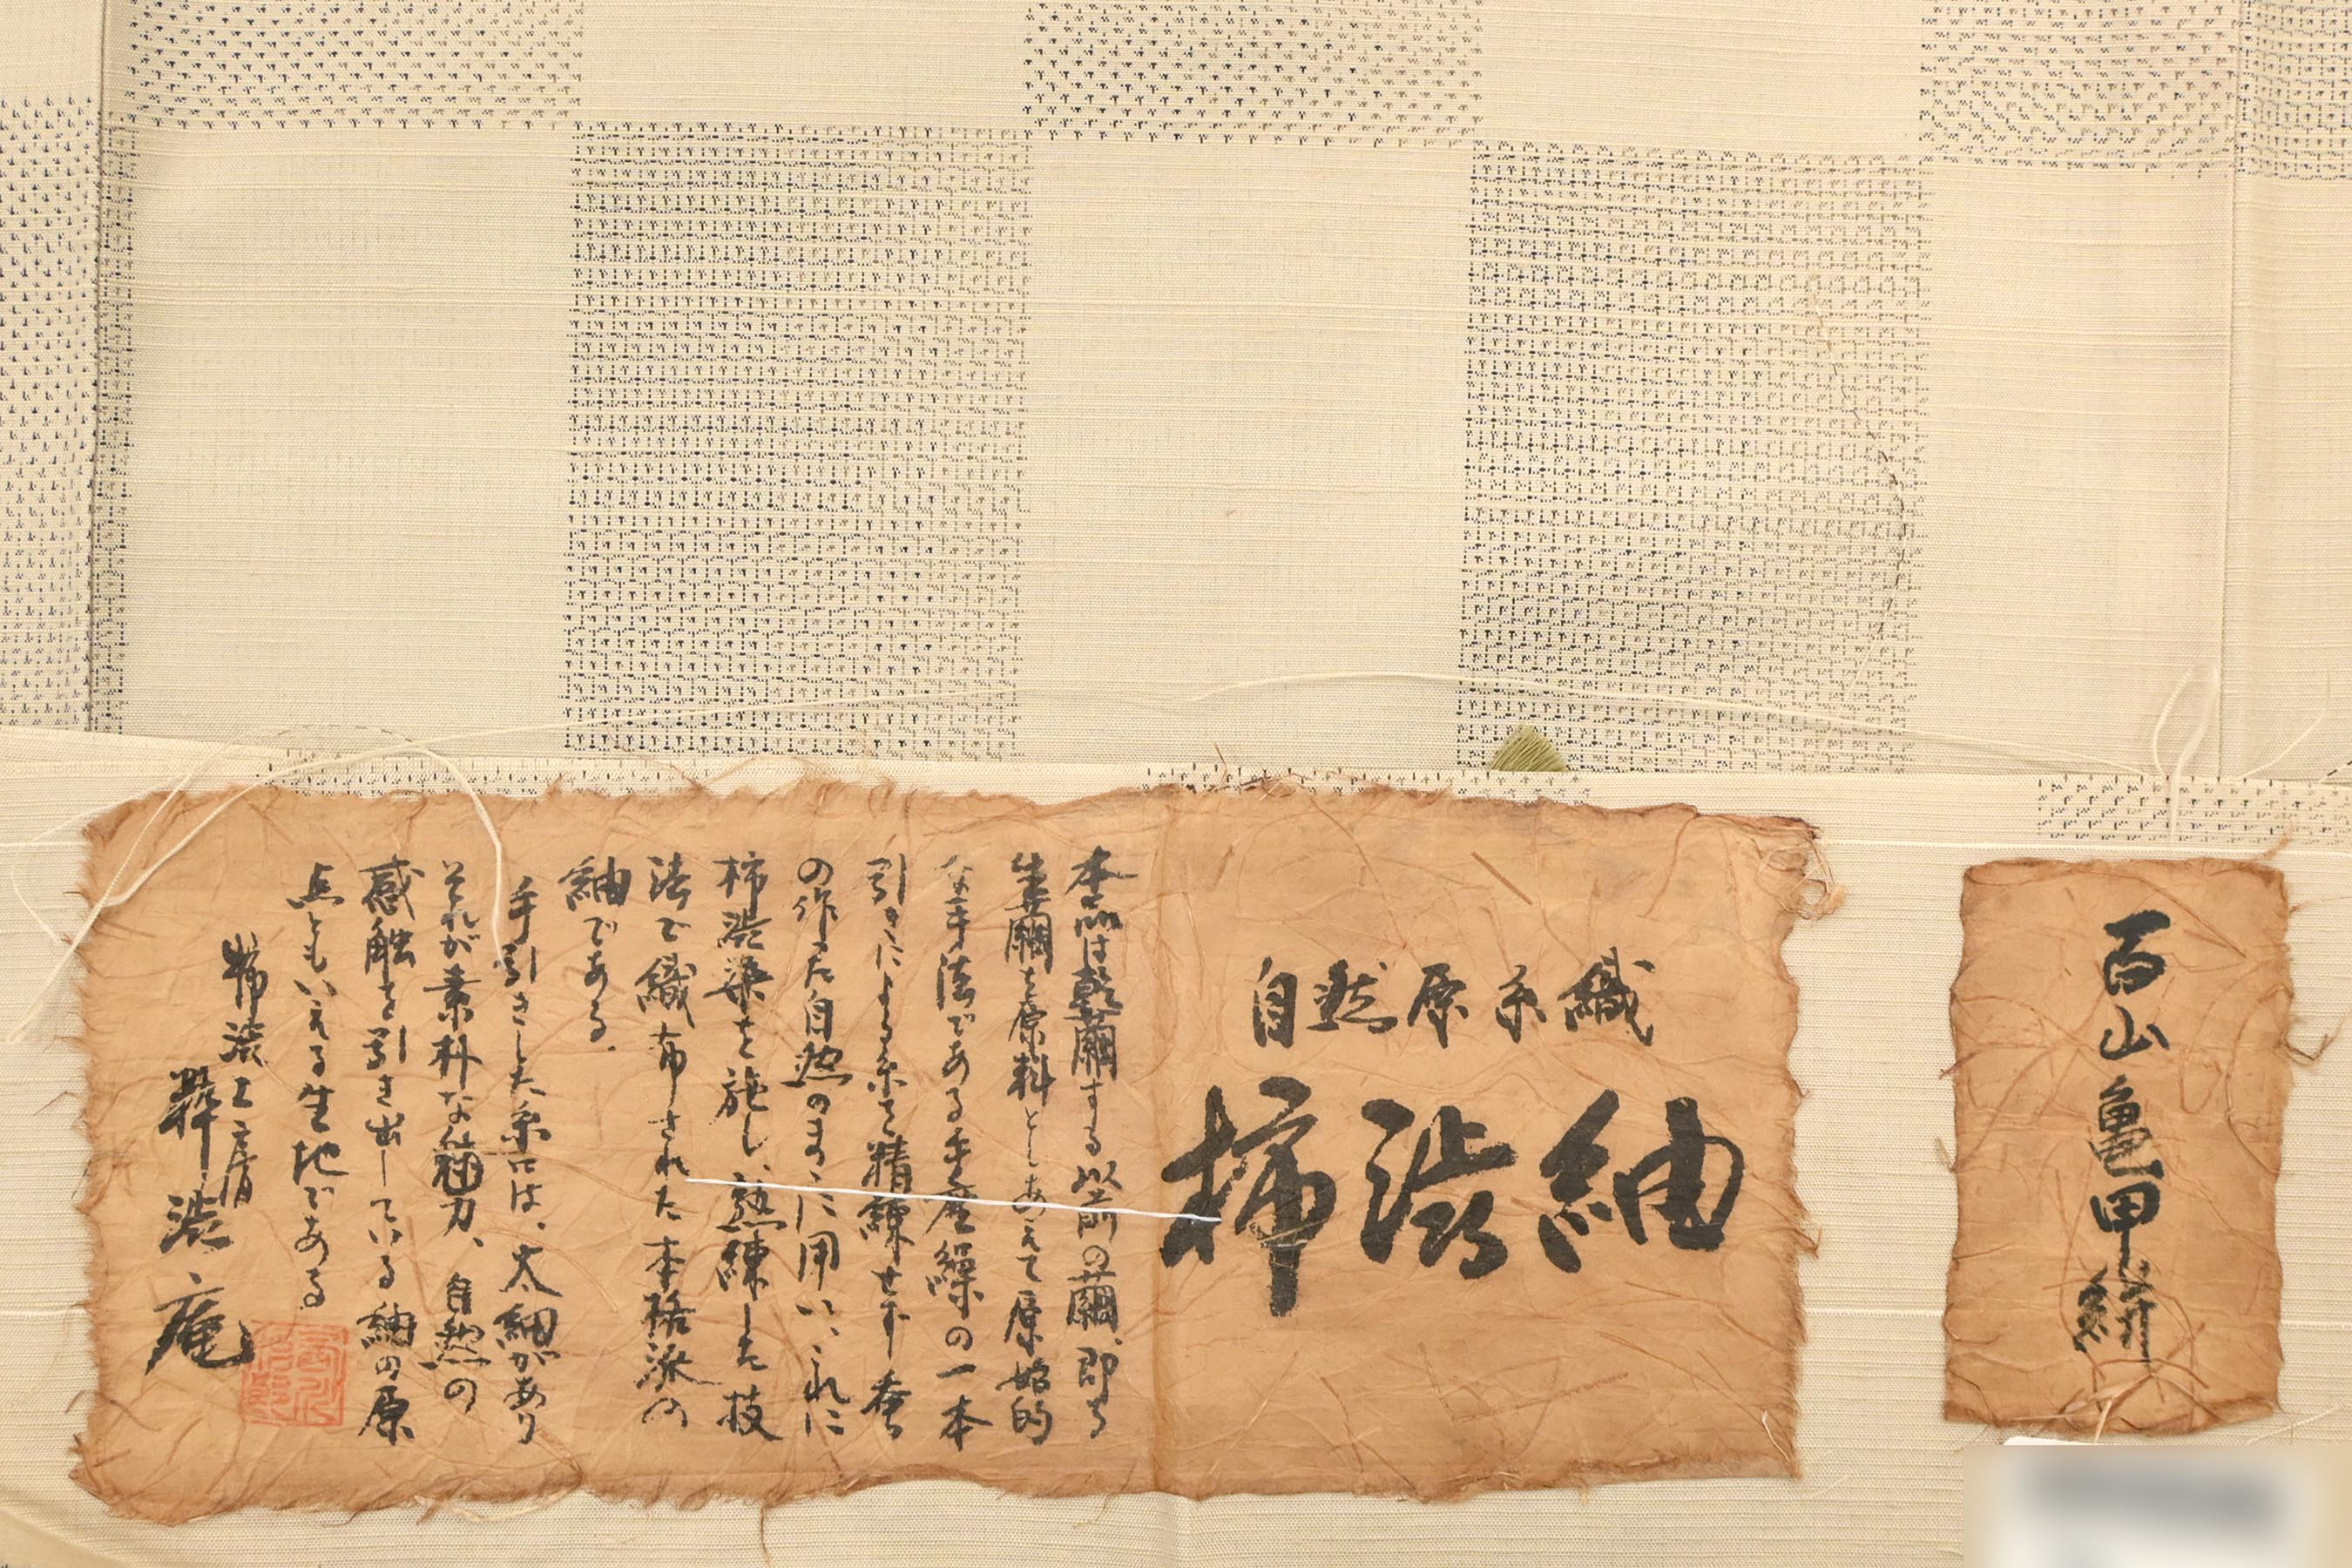 百山亀甲絣
自然原糸織
柿渋紬
本品は乾繭する以前の繭、即ち
生繭を原料としあえて原始的
な手法である手座繰の一本
引きによる糸で精錬せず蚕
の作った自然のままに用い、これに
柿渋染を施し、熟練した技
法で織布された本格派の
紬である。
手引きした糸には、太細があり
それが素朴な魅力、自然の
感触を引き出している紬の原
点ともいえる生地である
柿渋工房
渋庵